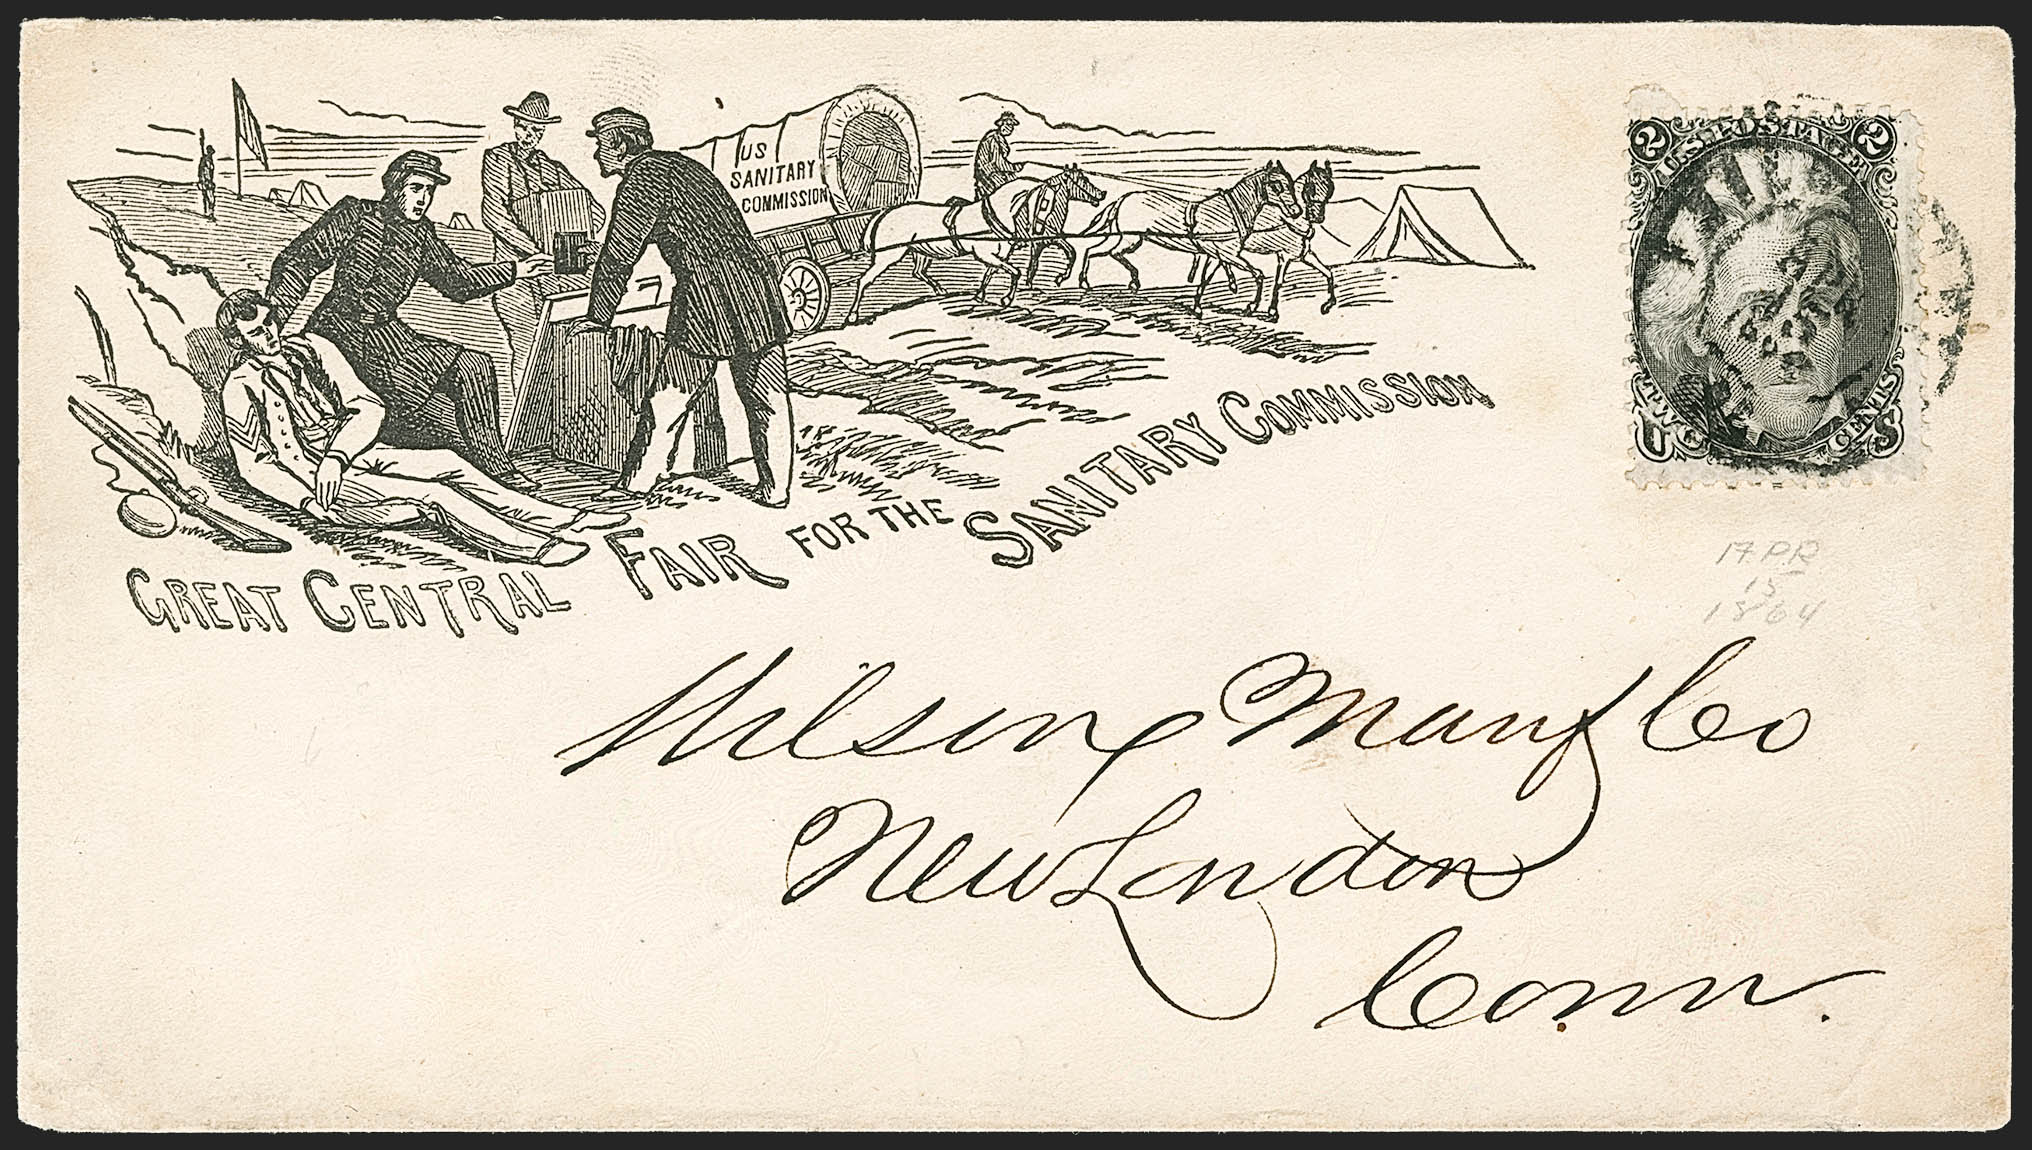 US
SANITARY
COMMISSION
GREAT CENTRAL FAIR FOR THE SANITARY COMMISSION
2 U.S. POSTAGE 2
TWO CENTS
U S
17 PR
15
1864
Wilson Manf Co
New London
Conn.